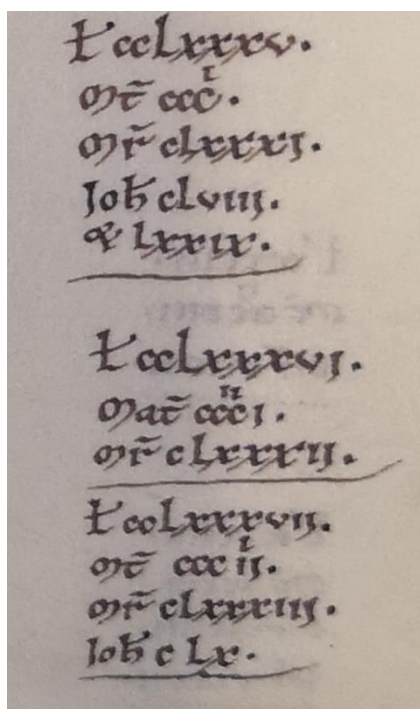 Ɫ cclxxxv.
m̅t̅ cccͥ.
m̅r̅ clxxxj.
Joħ clviij.
& lxxix.
Ɫ cclxxxvj.
m̅at̅ cccͥͥj.
m̅r̅ clxxxij.
Ɫ cclxxxvij.
m̅t̅ cccijͥ.
m̅r̅ clxxxiij.
Joħ clx.